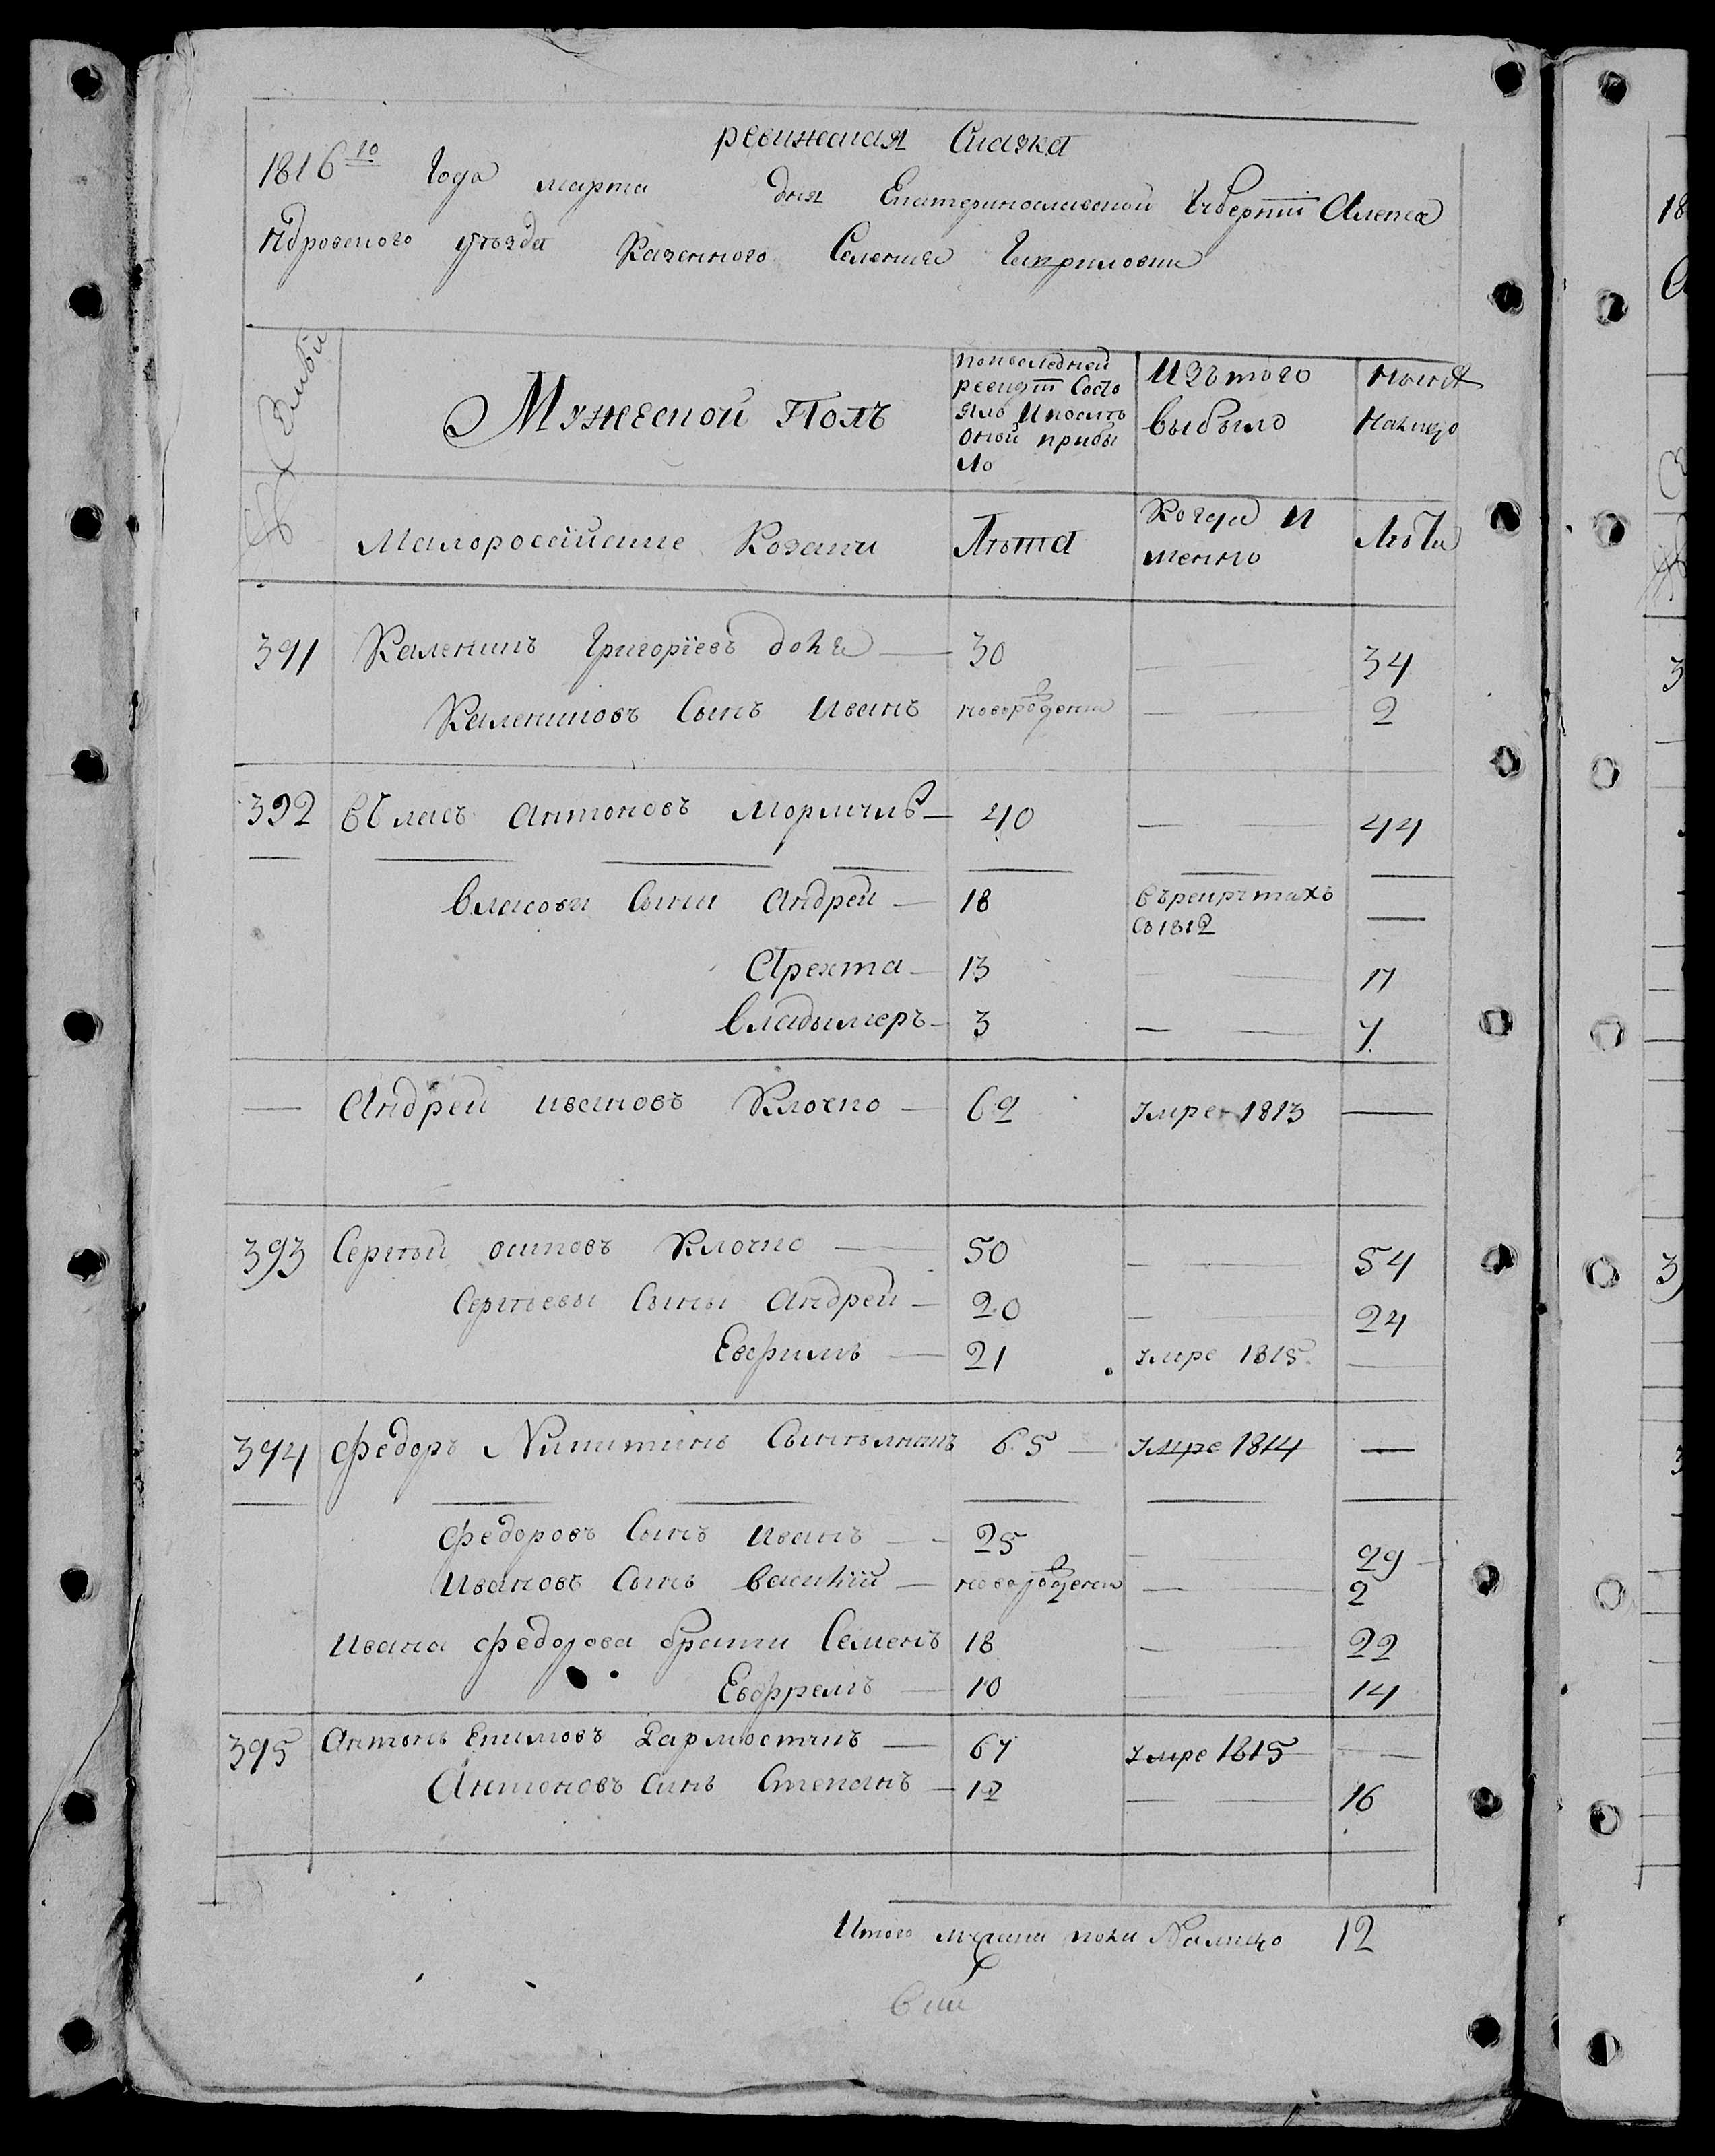 ревижская Сказка
1816го Года марта дня Екатеринославской Губернии Алекса
ндровского уезда Казенного Селения Гавриловки
Мужеской Полъ
попоследней
ревизии Состо
яло и послѣ
оной прибы
ло
Изъ того
выбыло
нынѣ
налицо
Малоросейские Козаки
Лѣта
Когда и
менно
Лѣта
391 Каленикъ Григорiевъ 30 — 34
Калениковъ Сынъ Иванъ новорожденн — 2
392 Власъ Антоновъ 40 — 44
Власови Сыни Андрей — 18 въ рекрутахъ —
со 1812
13 — 17
владымеръ — 3 — 7
— Андрей ивановъ Клочко — 69 умре 1813 —
393 Сергѣй осиповъ Клочко — 50 — 54
Сергѣевы Сыны Андрей — 20 — 24
Евфимъ — 21 умре 1815 —
394 Федоръ Никитинъ 65 — умре 1814 —
Федоровъ Сынъ Иванъ — 25 — 29
Ивановъ Сынъ василiй — новорожденн — 2
Ивана Федорова брати Семенъ 18 — 22
Евфремъ — 10 — 14
395 Антонъ Екимовъ — 67 умре 1815 —
Антоновъ синъ Степанъ — 12 — 16
Итого мужеска пола Налицо 12